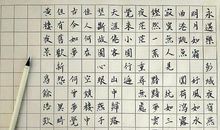 永遇樂 彭城夜
明月如霜好風如水
曲港跳魚圓荷瀉露
寂寞無人見紞如三
鏗然一葉黯黯夢
夜茫茫重尋無處
覺來小園行遍
天涯倦客山中歸路
望斷故園心眼燕子
佳人何在空鎖樓中燕
古今如夢何曾夢
但有舊歡新怨異時
黃樓夜景為餘浩歎